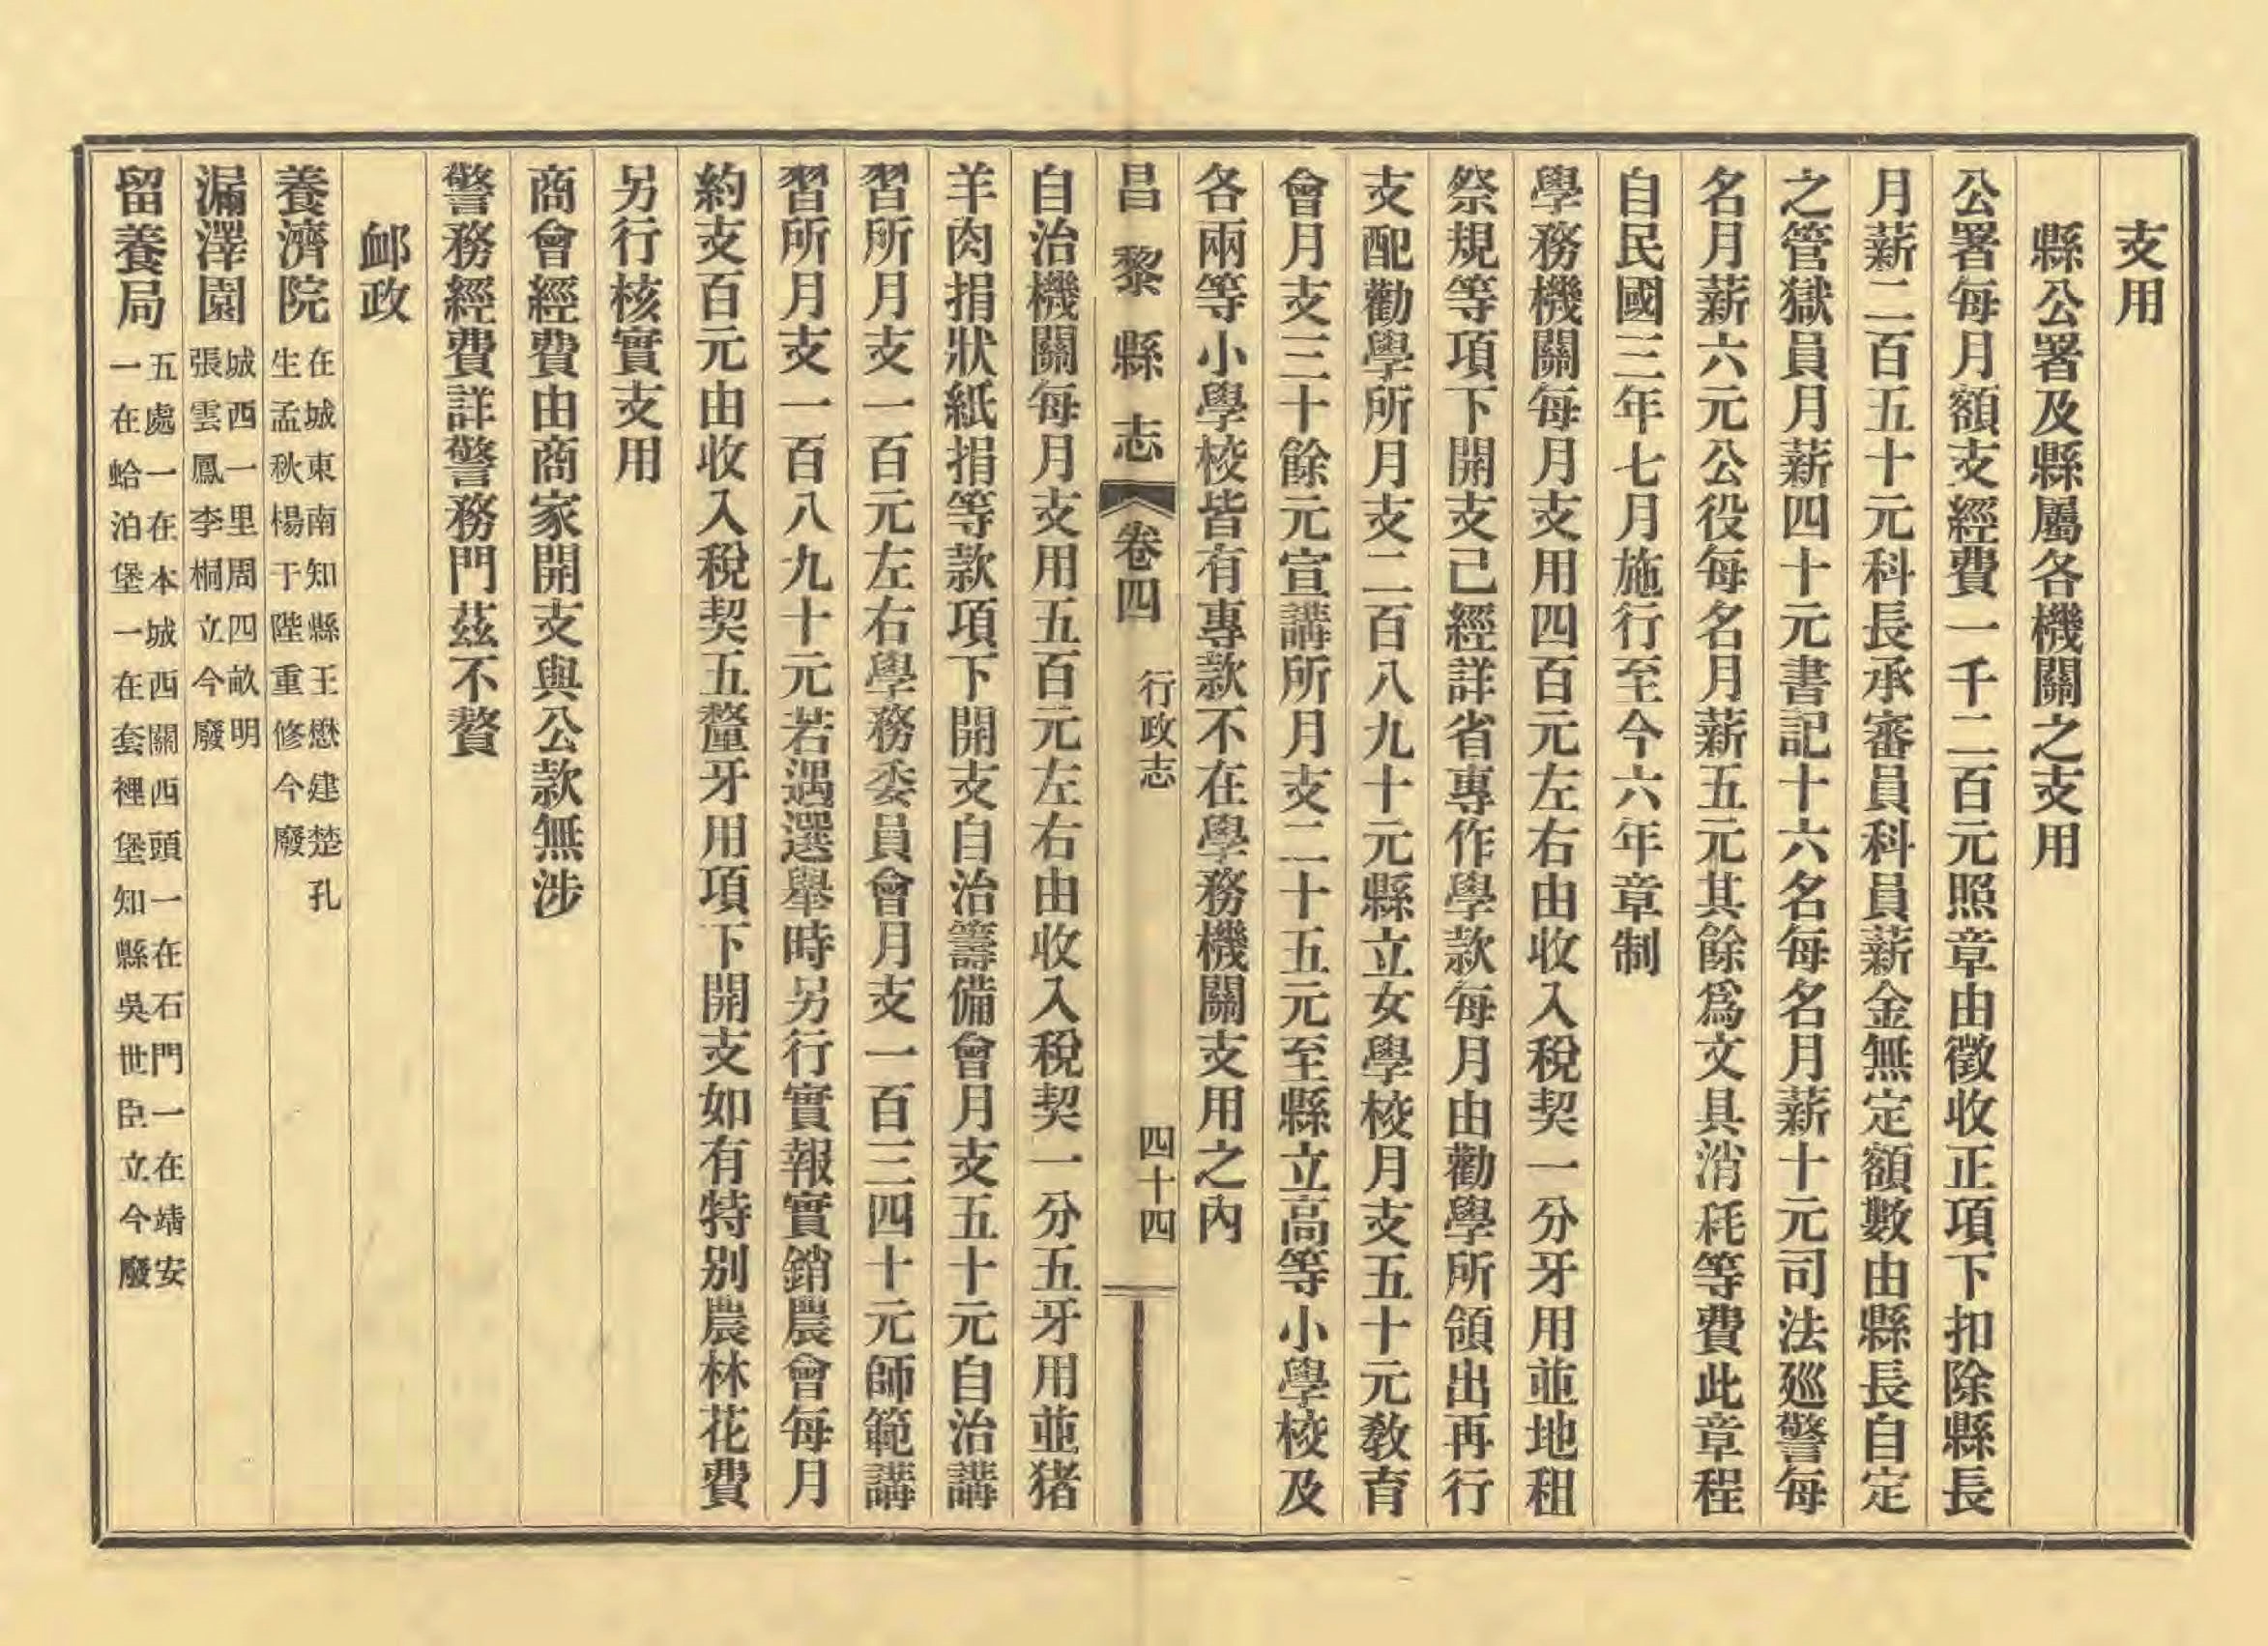 支用
縣公署及縣屬各機關之支用
公署每月額支經費一千二百元照章由徵收正項下扣除縣長
月薪二百五十元科長承審員科員薪金無定額數由縣長自定
之管獄員月薪四十元書記十六名每名月薪十元司法廵警每
名月薪六元公役每名月薪五元其餘爲文具消耗等費此章程
自民國三年七月施行至今六年章制
學務機關每月支用四百元左右由收入稅契一分牙用並地租
祭規等項下開支己經詳省專作學款每月由勸學所領出再行
支配勸學所月支二百八九十元縣立女學校月支五十元敎育
會月支三十餘元宣講所月支二十五元至縣立高等小學校及
各兩等小學校皆有專款不在學務機關支用之內
昌黎縣志 卷四 行政志 四十四
自治機關每月支用五百元左右由收入稅契一分五牙用並猪
羊肉捐狀紙捐等款項下開支自治籌備會月支五十元自治講
習所月支一百元左右學務委員會月支一百三四十元師範講
習所月支一百八九十元若遇選舉時另行實報實銷農會每月
約支百元由收入稅契五釐牙用項下開支如有特别農林花費
另行核實支用
商會經費由商家開支與公款無涉
警務經費詳警務門茲不贅
卹政
養濟院 在城東南知縣王懋建楚孔
生孟秋楊于陛重修今廢
漏澤園 城西一里周四畝明
張雲鳳李桐立今廢
留養局 五處一在本城西關西頭一在石門一在靖安
一在蛤泊堡一在套裡堡知縣吳世臣立今廢